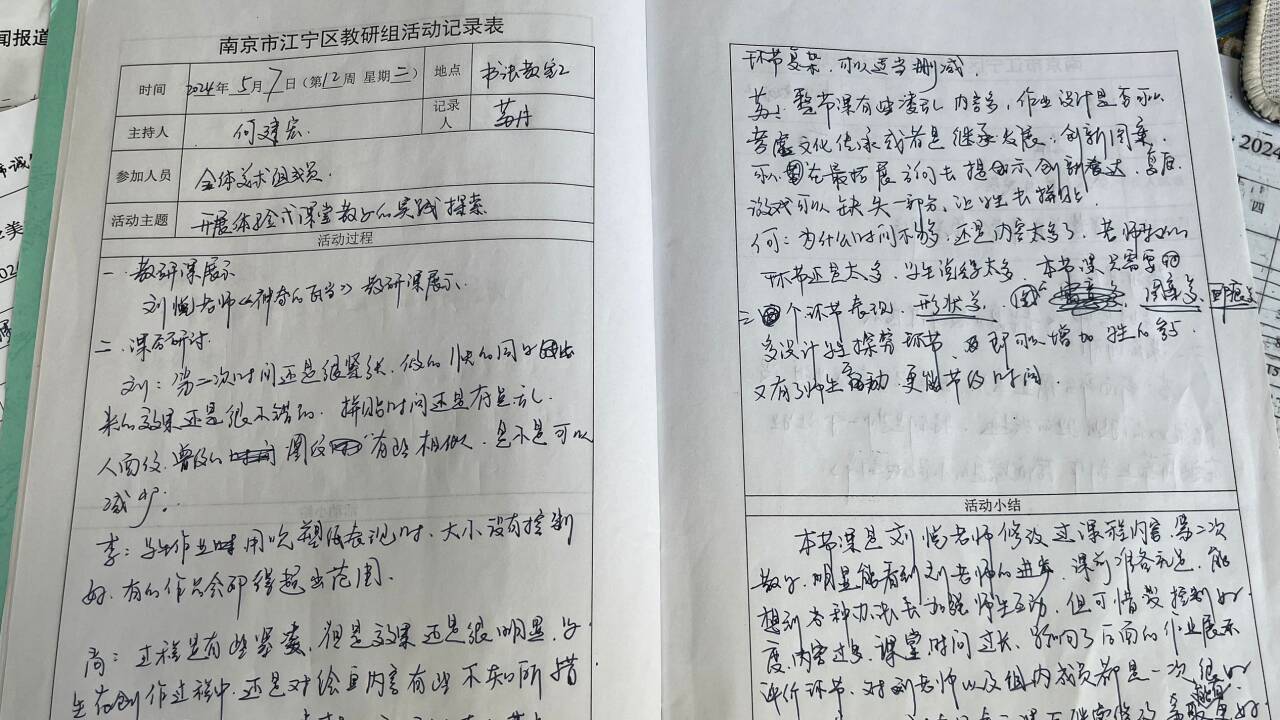 南京市江宁区教研组活动记录表
时间 2024年5月7日(第12周 星期二) 地点 书法教室2
主持人 何建宏 记录人 苗丹
参加人员 全体美术组成员
活动主题 开展体验式课堂教学的实践探索
活动过程
一、教研课展示
刘悦老师《神奇的瓦当》教研课展示.
二、课后研讨
刘:第二次时间还是很紧张,做的快的同学
来的效果还是很不错的,拼贴时间还是有点乱.
人面纹、兽纹的 图纹 有些相似,是不是可以
减少;
李:学生作业时用吹塑纸表现时,大小没有控制
好,有的作品会印得超出范围.
尚:过程是有些紧凑,但是效果还是很明显,学
生在创作过程中,还是对绘画内容有些不知所措
环节复杂,可以适当删减.
苗:整节课有些凌乱,内容多,作业设计是否可以
考虑文化传承或者是继承发展,创新图案,
可以 在最后展示时去提示创新表达,复原
游戏可以缺失一部分,让学生去拼贴.
何:为什么时间不够,还是内容太多了,老师
环节还是太多,学生 太多,本节课只需要
三个环节表现,形状美、图案美、印痕美
多设计学生探究环节,及 可以增加学生的
又有了师生互动,更能节约时间.
活动小结
本节课是刘悦老师修改过课程内容,第二次
教学,明显能看到刘老师的进步,课前准备充足,能
想到各种办法去加强师生互动,但可惜没控制好
度,内容过多,课堂时间过长,影响了后面的作业展示
评价环节.对刘老师以及组内成员都是一次很好
闻报道
2024
四